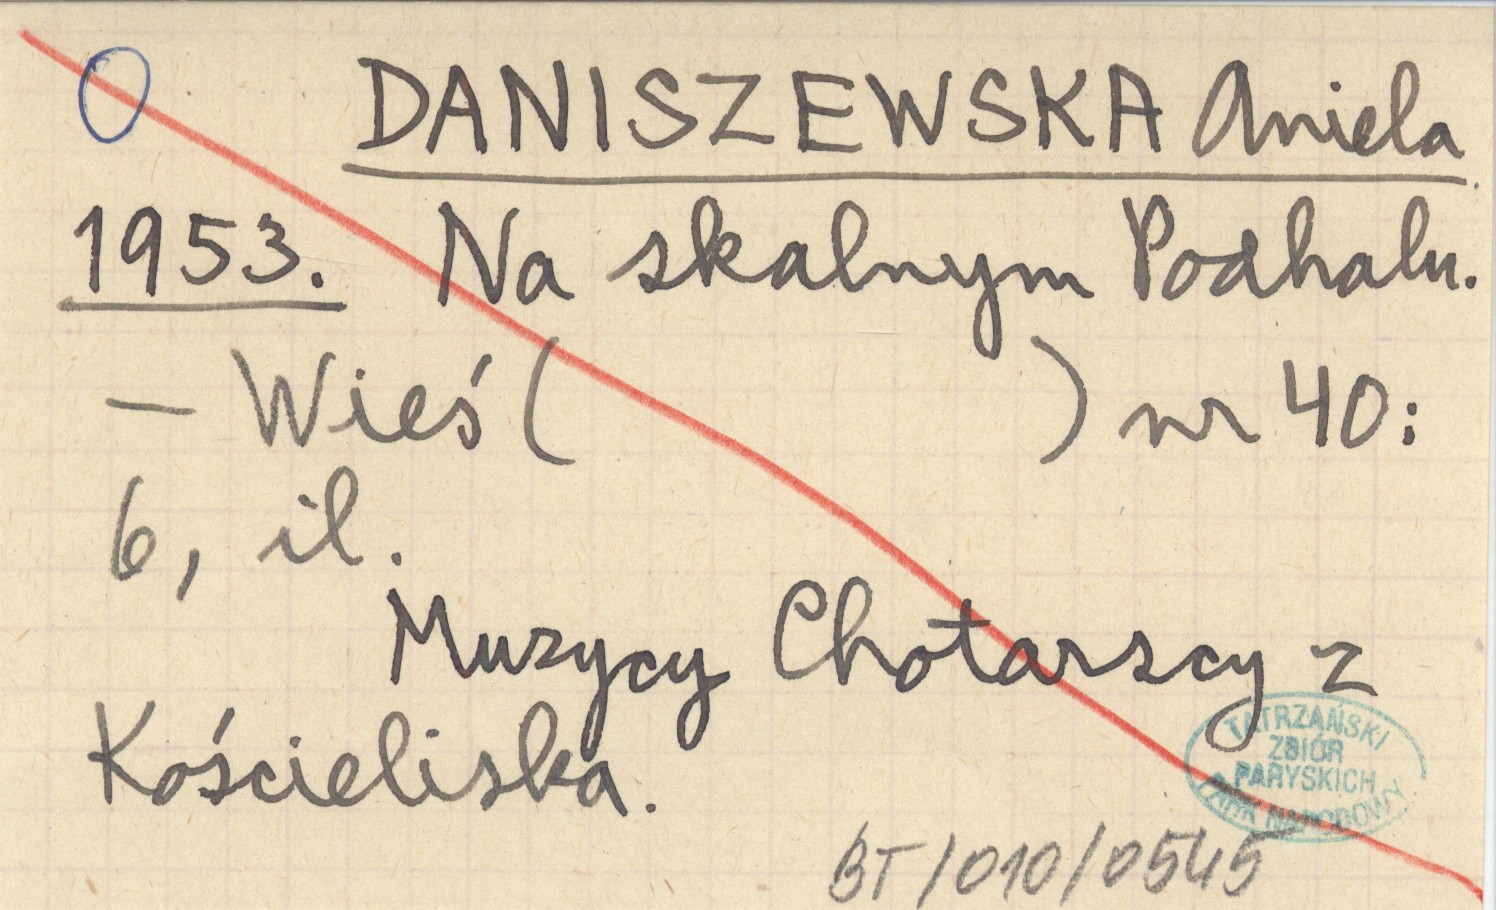 DANISZEWSKA Aniela
1953. Na skalnym Podhalu.
— Wieś ( ) nr 40:
6, il.
Muzycy Chotarscy z
Kościeliska.
TATRZAŃSKI
ZBIÓR
PARYSKICH
PARK NARODOWY
BT/010/0545